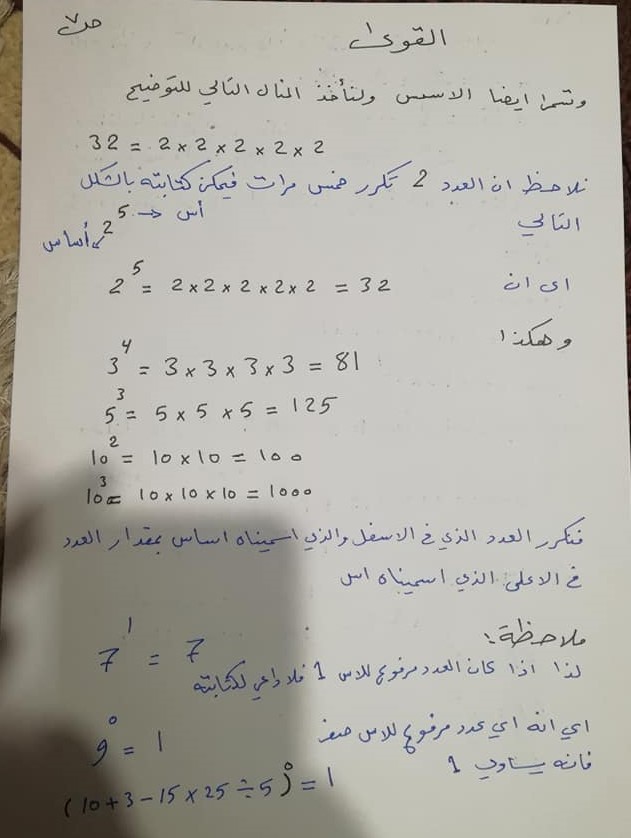 ص٧
القوى
وتسمى ايضا الاسس ولنأخذ المثال التالي للتوضيح
32 = 2 × 2 × 2 × 2 × 2
نلاحظ ان العدد 2 تكرر خمس مرات فيمكن كتابته بالشكل
التالي
2⁵ → أس
أساس
اي ان 2⁵ = 2 × 2 × 2 × 2 × 2 = 32
وهكذا
3⁴ = 3 × 3 × 3 × 3 = 81
5³ = 5 × 5 × 5 = 125
10² = 10 × 10 = 100
10³ = 10 × 10 × 10 = 1000
فنكرر العدد الذي في الاسفل والذي اسميناه اساس بمقدار العدد
في الاعلى الذي اسميناه اس
ملاحظة:
7¹ = 7
لذا اذا كان العدد مرفوع للاس 1 فلا داعي لكتابته
اي انه اي عدد مرفوع للاس صفر
9⁰ = 1
فانه يساوي 1
(10 + 3 − 15 × 25 ÷ 5)⁰ = 1